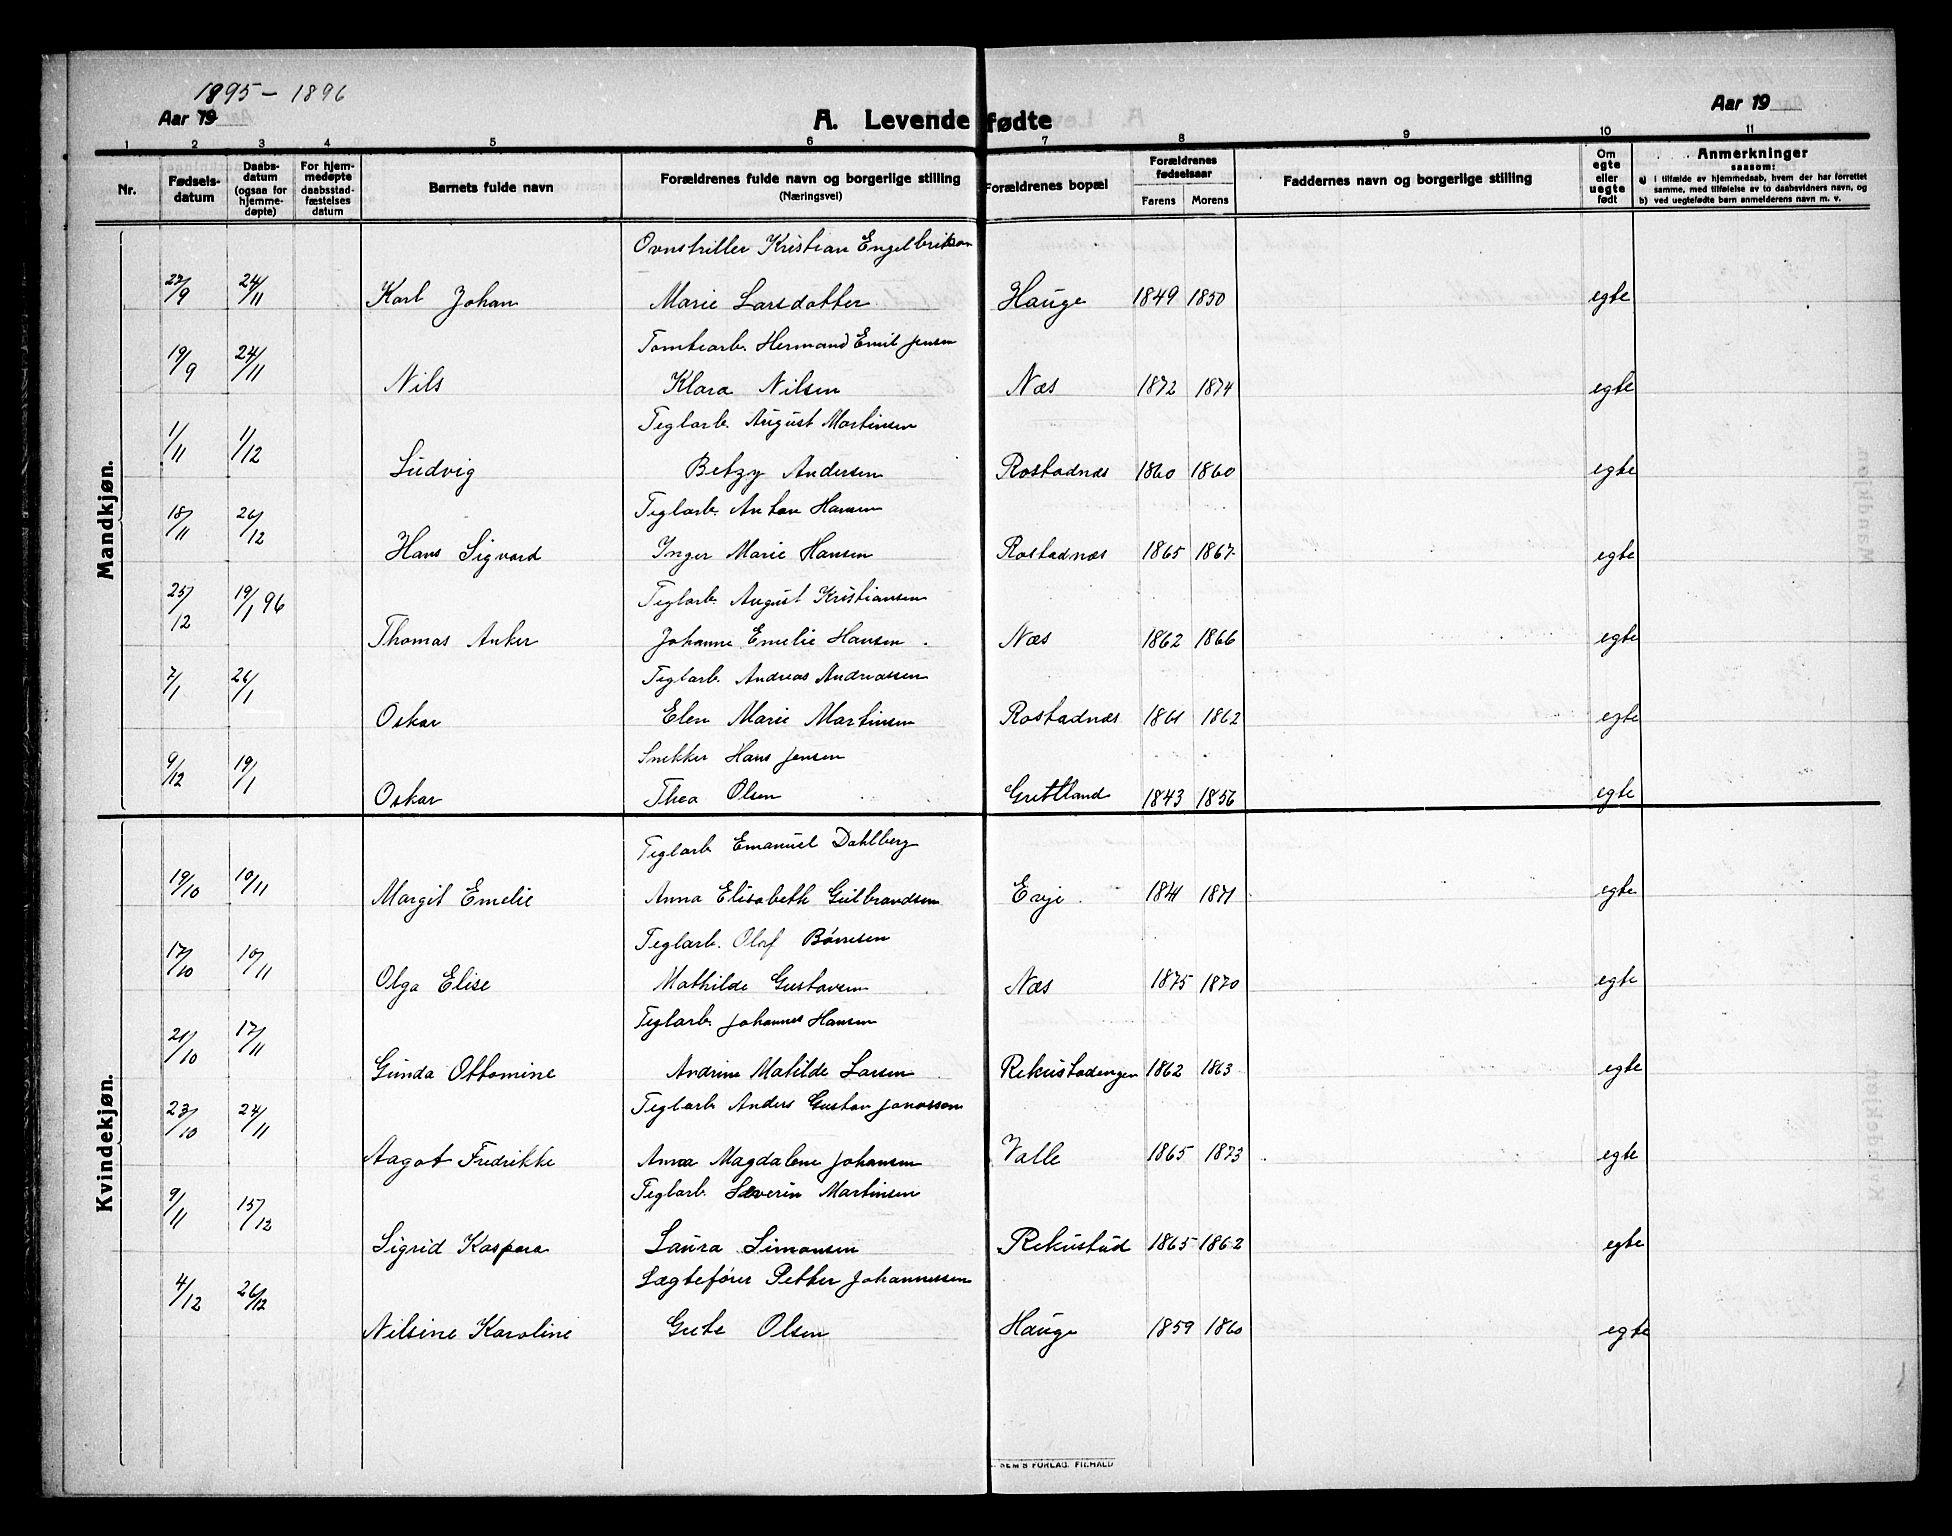 1895 - 1896
Aar 19
A. Levende fødte
Aar 19
1 2 3 4 5 6 7 8 9 10 11
Nr.
Fødsels-
datum
Daabs-
datum
(ogsaa for
hjemme-
døpte)
For hjem-
medøpte
daabsstad-
fæstelses
datum
Barnets fulde navn
Forældrenes fulde navn og borgerlige stilling
(Næringsvei)
Forældrenes bopæl
Forældrenes
fødselsaar
Farens Morens
Faddernes navn og borgerlige stilling
Om
egte
eller
uegte
født
Anmerkninger
saasom:
a) i tilfælde av hjemmedaab, hvem der har forrettet
samme, med tilføielse av to daabsvidners navn, og
b) ved uegtefødte barn anmelderens navn m. v.
Mandkjøn.
Kristian Engelbrikson
22/9 24/11 Karl Johan Marie Larsdatter Hauge 1849 1850 egte
Tomtearb. Hermand Emil Jensen
19/9 24/11 Nils Klara Nilsen Næs 1872 1874 egte
Teglarb. August Martinsen
1/11 1/12 Ludvig Betzy Andersen Rostadnæs 1860 1860 egte
Teglarb. Anton Hansen
18/11 26/12 Hans Sigvard Inger Marie Hansen Rostadnæs 1865 1867 egte
Teglarb. August Kristiansen
25/12 19/1 96 Thomas Anker Johanne Emelie Hansen Næs 1862 1866 egte
Teglarb. Andreas Andreassen
7/1 26/1 Oskar Elen Marie Martinsen Rostadnæs 1861 1862 egte
Snekker Hans Jensen
9/12 19/1 Oskar Thea Olsen Gretland 1843 1856 egte
Kvindekjøn.
Teglarb. Emanuel Dahlberg
19/10 10/11 Margit Emelie Anna Elisabeth Gulbrandsen Evje 1841 1871 egte
Teglarb. Olaf Børresen
17/10 10/11 Olga Elise Mathilde Gustavsen Næs 1875 1870 egte
Teglarb. Johannes Hansen
21/10 17/11 Gunda Ottomine Andrine Matilde Larsen Rekustadengen 1862 1863 egte
Teglarb. Anders Gustav Jonasson
23/10 24/11 Aagot Fredrikke Anna Magdalene Johansen Valle 1865 1873 egte
Teglarb. Severin Martinsen
9/11 15/12 Sigrid Kaspara Laura Simonsen Rekustad 1865 1862 egte
Lægtefører Petter Johannessen
4/12 26/12 Nilsine Karoline Grete Olsen Hauge 1859 1860 egte
SEM'S FORLAG. FR.HALD